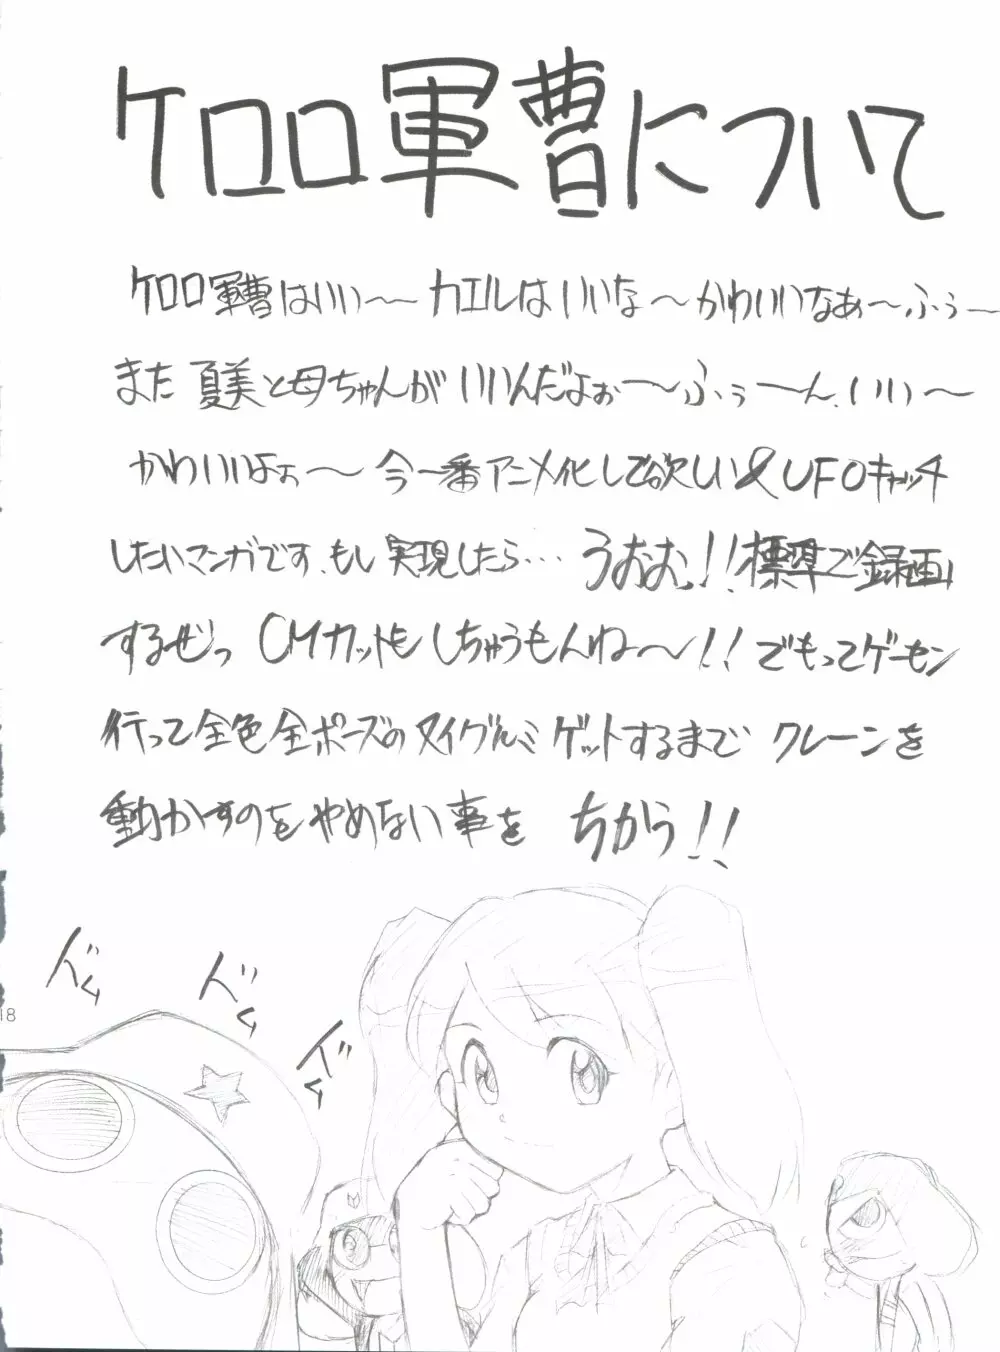 ケロロ軍曹について
ケロロ軍曹はいい〜カエルはいいな〜かわいいなぁ〜ふぅ〜
また夏美と母ちゃんがいいんだよぉ〜ふぅ〜ん、いい〜
かわいいよぉ〜今一番アニメ化して欲しい&UFOキャッチ
したいマンガです、もし実現したら…うおお!!標準で録画
するぜっCMカットもしちゃうもんね〜!!でもってゲーセン
行って全色全ポーズのヌイグルミゲットするまでクレーンを
動かすのをやめない事をちかう!!
ドム
ドム
ドム
18